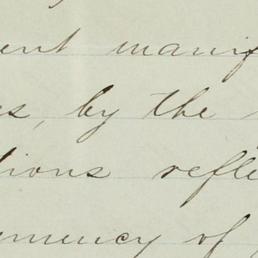 ent manif
es, by the
tions refle
emency of